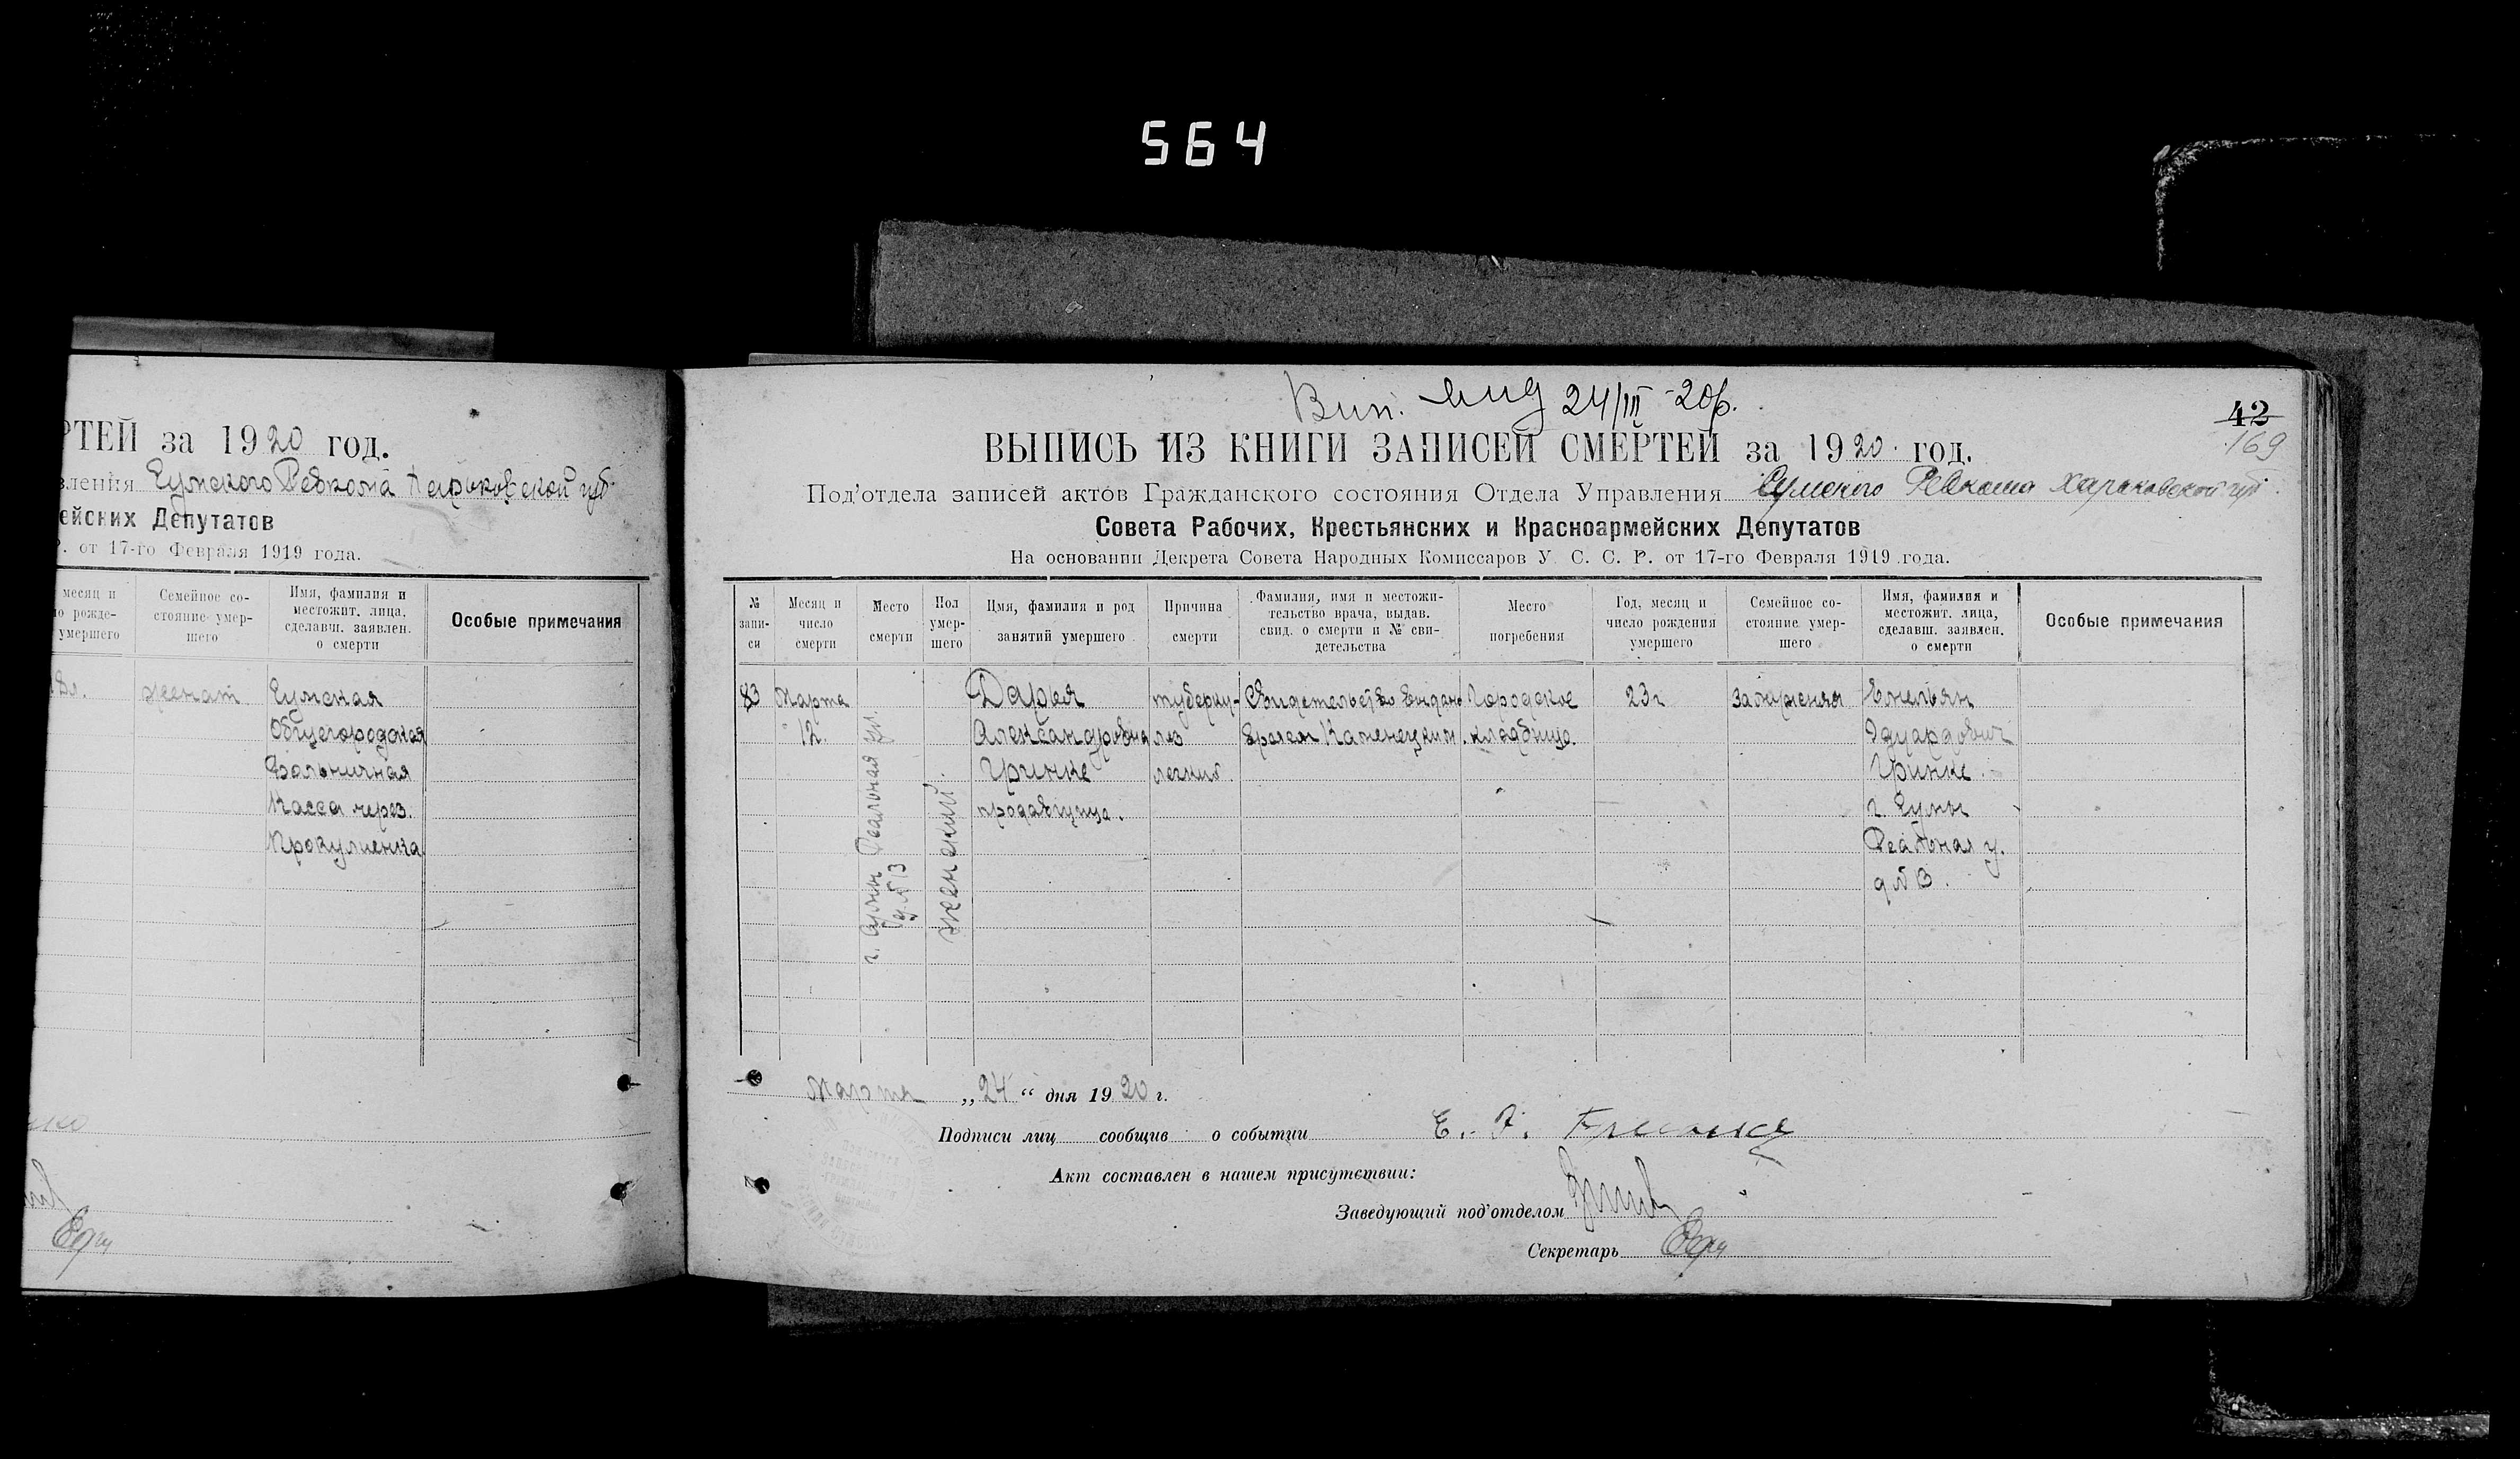 564
РТЕЙ за 1920 год.
вления Сумского Ревкома Харьковской губ.
ейских Депутатов
Р. от 17-го Февраля 1919 года.
месяц и
о рожде-
умершего
Семейное со-
стояние умер-
шего
Имя, фамилия и
местожит. лица,
сделавш. заявлен.
о смерти
Особые примечания
женат
Сумская
Общегородская
Больничная
Касса через
Прокуменка
42
169
24/III-20р.
ВЫПИСЬ ИЗ КНИГИ ЗАПИСЕЙ СМЕРТЕЙ за 1920 год.
Под'отдела записей актов Гражданского состояния Отдела Управления Сумского Ревкома Харьковской губ.
Совета Рабочих, Крестьянских и Красноармейских Депутатов
На основании Декрета Совета Народных Комиссаров У. С. С. Р. от 17-го Февраля 1919 года.
№
запи-
си
Месяц и
число
смерти
Место
смерти
Пол
умер-
шего
Имя, фамилия и род
занятий умершего
Причина
смерти
Фамилия, имя и местожи-
тельство врача, выдав.
свид. о смерти и № сви-
детельства
Место
погребения
Год, месяц и
число рождения
умершего
Семейное со-
стояние умер-
шего
Имя, фамилия и
местожит. лица,
сделавш. заявлен.
о смерти
Особые примечания
83
Марта
12
г. Сумы Реальная ул.
д. №13
женский
Дарья
Александровна
Гринке
продавщица.
туберку-
лез
легких.
Свидетельство выдано
врачем Каменецким.
Городское
кладбище.
23 г
замужняя
Емельян
Эдуардович
Гринке
г. Сумы
Реальная у.
д № 13.
Марта „24“ дня 1920 г.
Подписи лиц сообщив о событии Е. Э. Гринке
Акт составлен в нашем присутствии:
Заведующий под'отделом
Секретарь